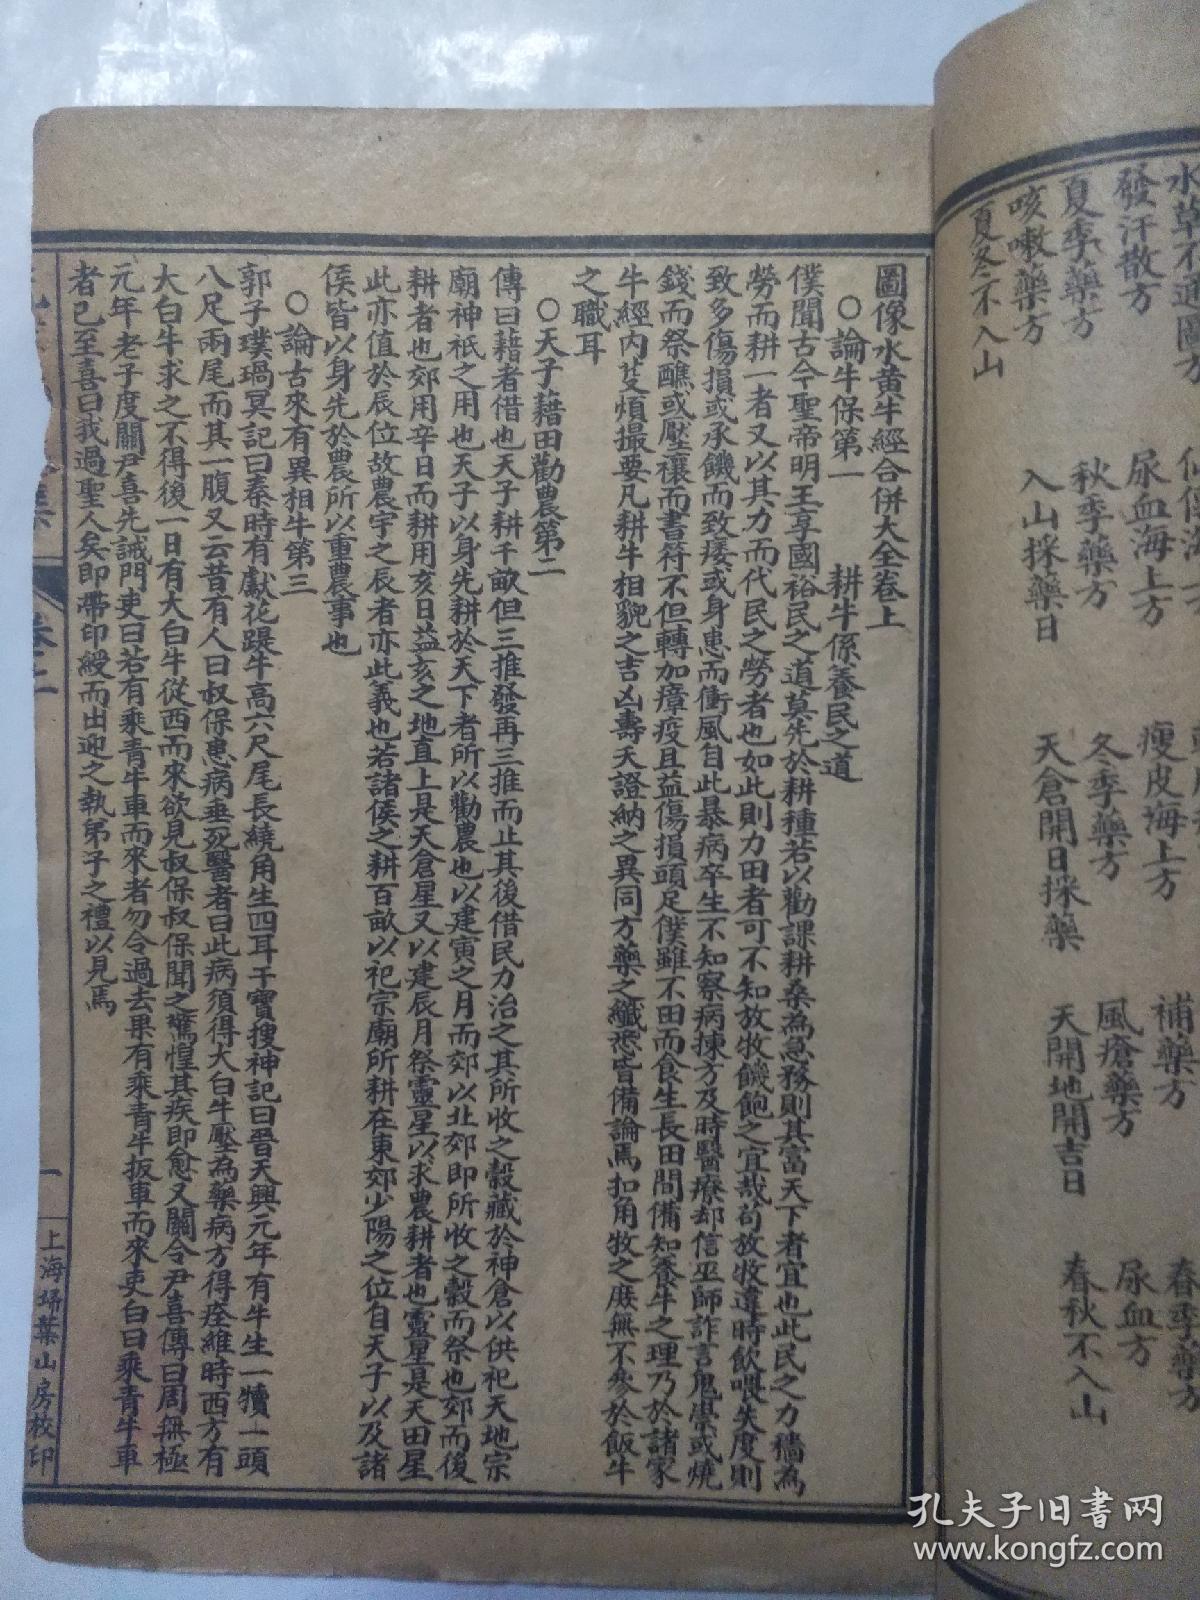 水草不通圖方
發汗散方 尿血海上方 瘦皮海上方 補藥方 春季藥方
夏季藥方 秋季藥方 冬季藥方 風瘡藥方 尿血方
咳嗽藥方 入山採藥日 天倉開日採藥 天開地開吉日 春秋不入山
夏冬不入山
圖像水黃牛經合併大全卷上
○論牛保第一 耕牛係養民之道
僕聞古今聖帝明王享國裕民之道莫先於耕種若以勸課耕桑為急務則其富天下者宜也此民之力穡為
勞而耕一者又以其力而代民之勞者也如此則力田者可不知放牧饑飽之宜哉苟放牧違時飲喂失度則
致多傷損或承饑而致瘘或身患而衝風自此暴病卒生不知察病揀方及時醫療却信巫師詐言鬼祟或燒
錢而祭醮或壓禳而書符不但轉加瘴疫且益傷損頭足僕雖不田而食生長田間備知養牛之理乃於諸家
牛經內芟煩撮要凡耕牛相貌之吉凶壽夭證納之異同方藥之纖悉皆備論焉扣角牧之庶無不參於飯牛
之職耳
○天子藉田勸農第二
傳曰藉者借也天子耕千畝但三推發再三推而止其後借民力治之其所收之穀藏於神倉以供祀天地宗
廟神祇之用也天子以身先耕於天下者所以勸農也以建寅之月而郊以北郊即所收之穀而祭也郊而後
耕者也郊用辛日而耕用亥日益亥之地直上是天倉星又以建辰月祭靈星以求農耕者也靈星是天田星
此亦值於辰位故農字之辰者亦此義也若諸侯之耕百畝以祀宗廟所耕在東郊少陽之位自天子以及諸
侯皆以身先於農所以重農事也
○論古來有異相牛第三
郭子璞瑦冥記曰秦時有獻花蹄牛高六尺尾長繞角生四耳干寶搜神記曰晉天興元年有牛生一犢一頭
八尺兩尾而其一腹又云昔有人曰叔保患病垂死醫者曰此病須得大白牛壓為藥病方得痊維時西方有
大白牛求之不得後一日有大白牛從西而來欲見叔保叔保聞之驚惶其疾即愈又關令尹喜傳曰周無極
元年老子度關尹喜先誡門吏曰若有乘青牛車而來者勿令過去果有乘青牛扳車而來吏白曰乘青牛車
者已至喜曰我過聖人矣即帶印綬而出迎之執弟子之禮以見焉
一
上海埽葉山房校印
孔夫子旧书网
www.kongfz.com